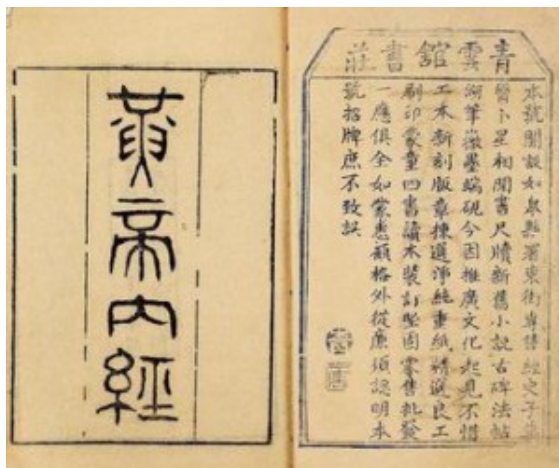 青雲舘書莊
本號開設如皋縣署東街專售經史子集
醫卜星相閒書尺牘新舊小說古碑法帖
湖筆徽墨端硯今因推廣文化起見不惜
工本新刻版章揀選淨純重紙精選良工
刷印蒙童四書讀本裝訂堅固躉售批發
一應俱全如蒙惠顧格外從廉須認明本
號招牌庶不致誤
黃帝內經